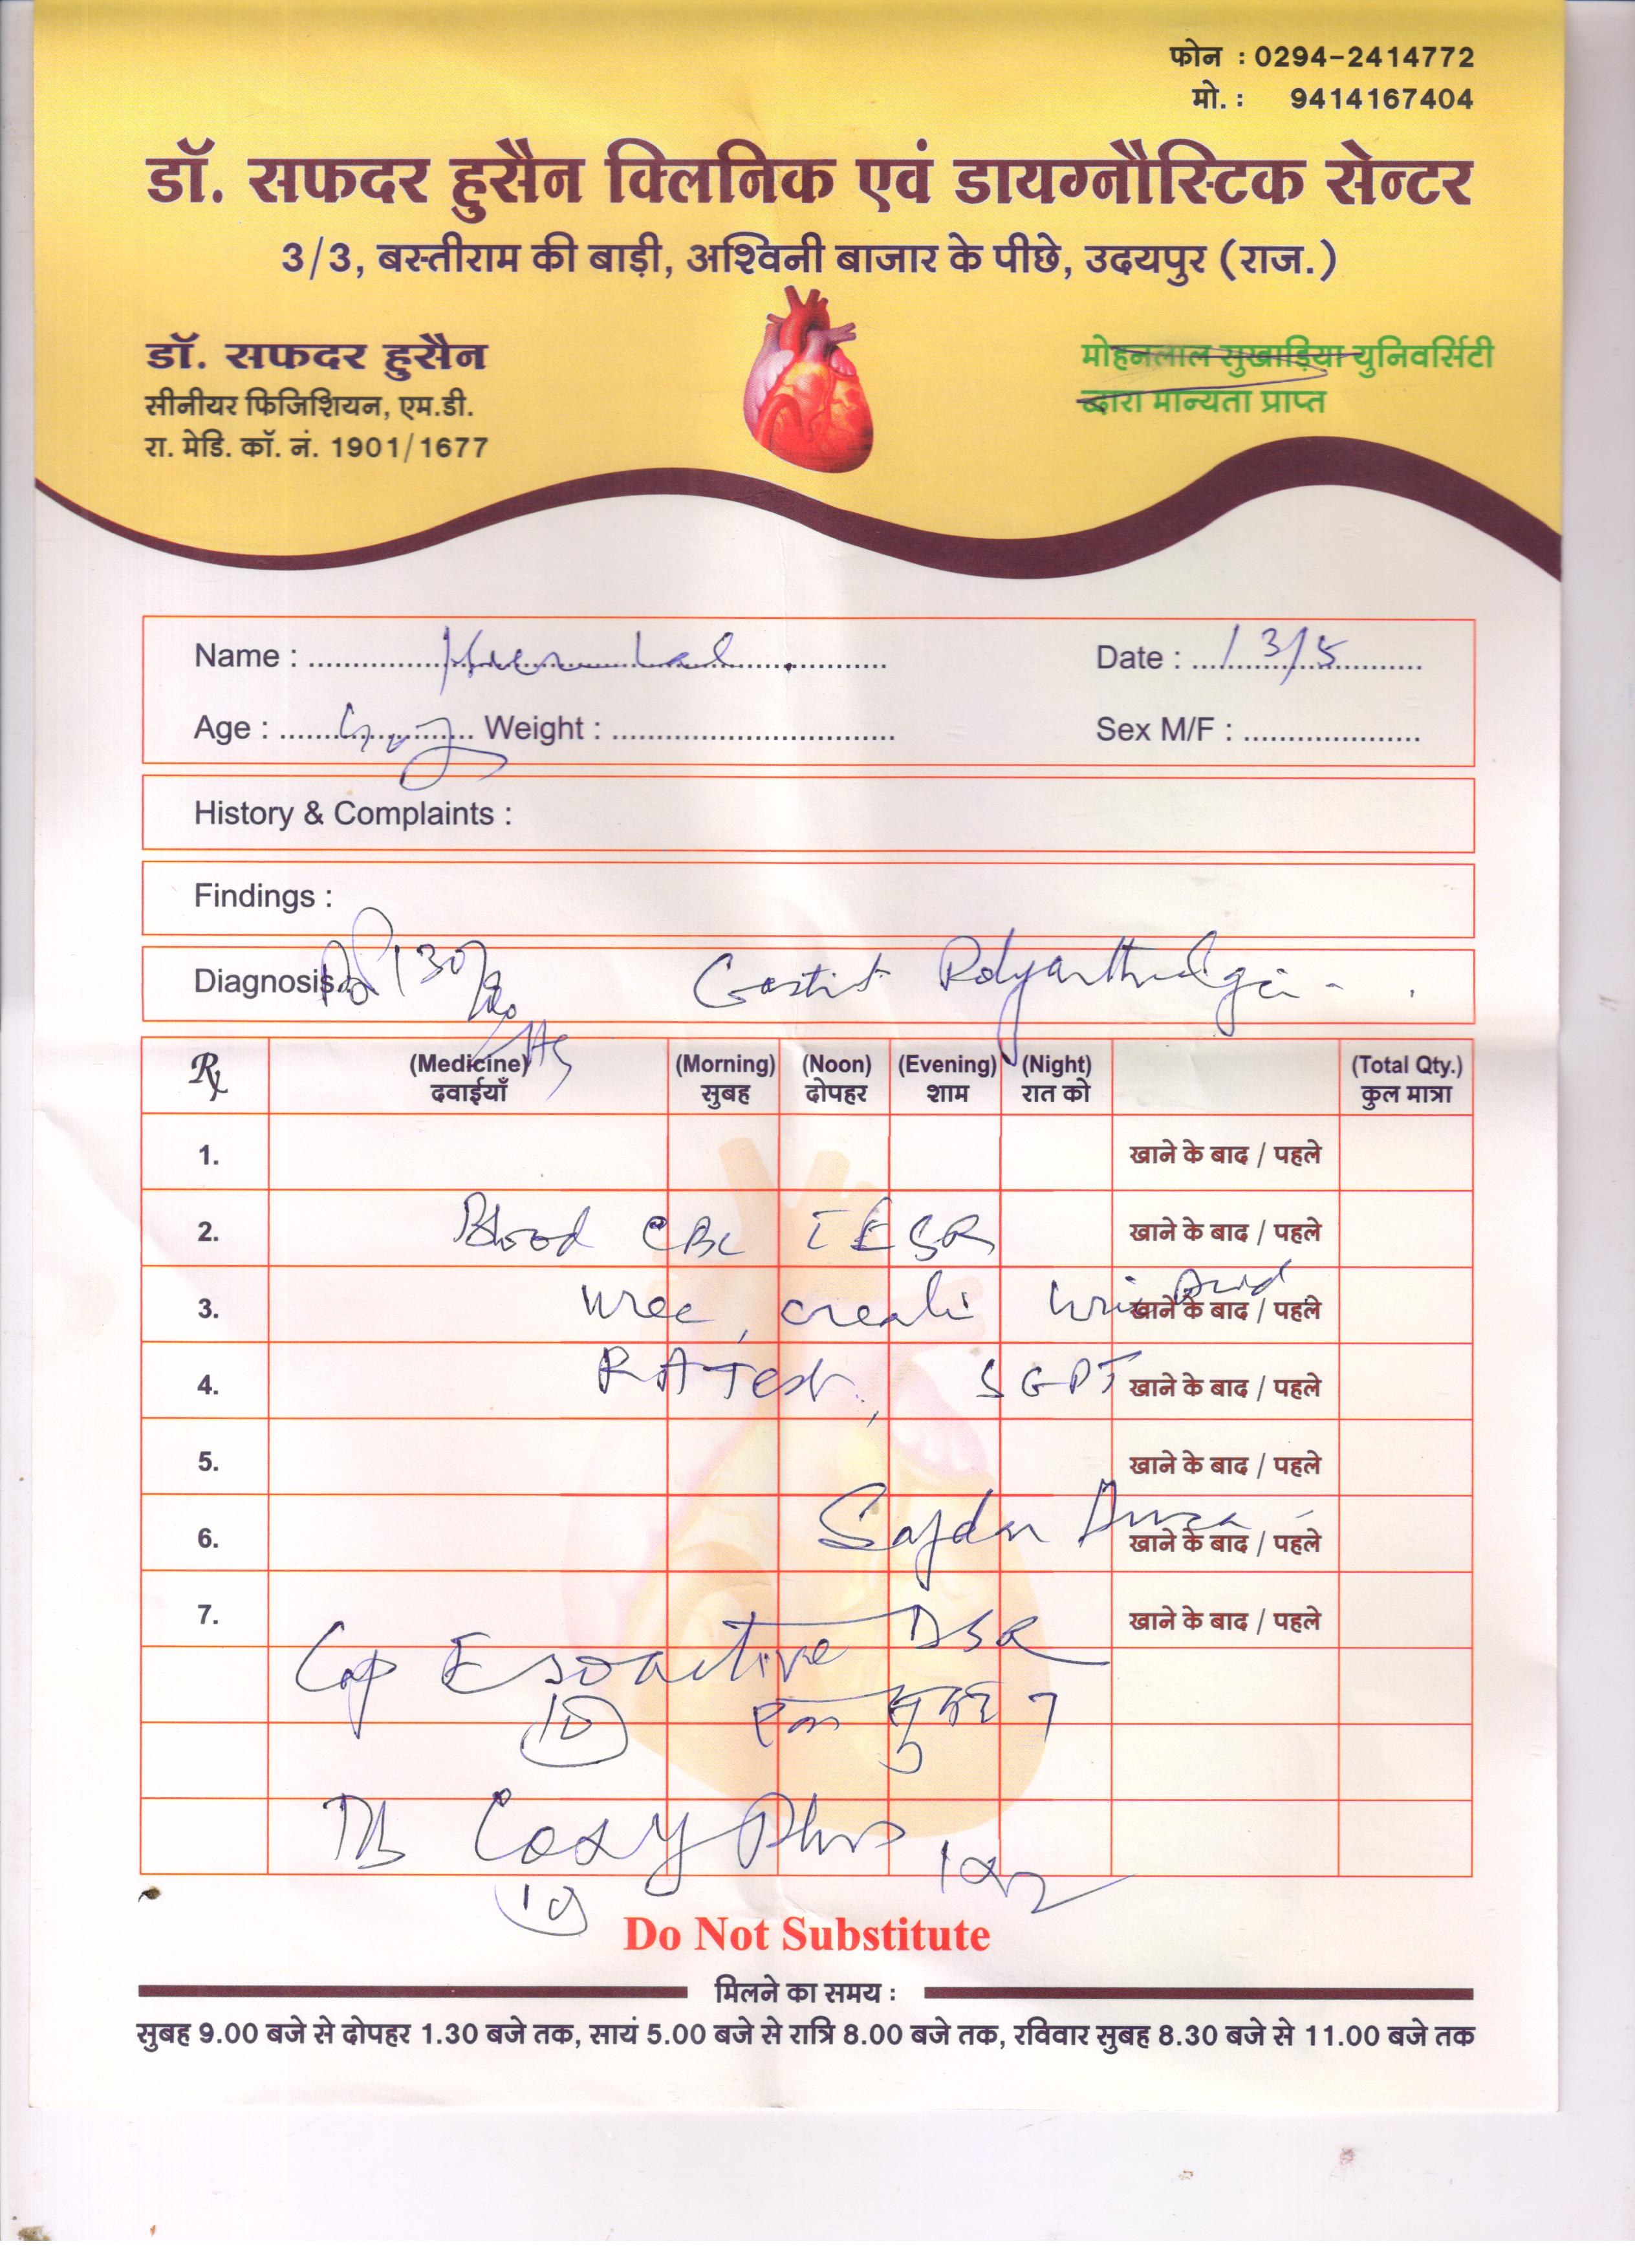 फोन : 0294-2414772
मो. : 9414167404
डॉ. सफदर हुसैन क्लिनिक एवं डायग्नौस्टिक सेन्टर
3/3, बस्तीराम की बाड़ी, अश्विनी बाजार के पीछे, उदयपुर (राज.)
डॉ. सफदर हुसैन
सीनीयर फिजिशियन, एम.डी.
रा. मेडि. कॉ. नं. 1901/1677
मोहनलाल सुखाड़िया युनिवर्सिटी
द्वारा मान्यता प्राप्त
Name : Date : 13/5
Age : Weight : Sex M/F :
History & Complaints :
Findings :
Diagnosis 130/80
Rx (Medicine) (Morning) (Noon) (Evening) (Night) (Total Qty.)
दवाईयाँ सुबह दोपहर शाम रात को कुल मात्रा
1. खाने के बाद / पहले
2. Blood CBC ESR खाने के बाद / पहले
3. Uric Acid खाने के बाद / पहले
4. RA Test, SGPT खाने के बाद / पहले
5. खाने के बाद / पहले
6. खाने के बाद / पहले
7. खाने के बाद / पहले
Cap Esoactive DSR
10 एक सुबह
Coxy Plus
10 1x2
Do Not Substitute
मिलने का समय :
सुबह 9.00 बजे से दोपहर 1.30 बजे तक, सायं 5.00 बजे से रात्रि 8.00 बजे तक, रविवार सुबह 8.30 बजे से 11.00 बजे तक